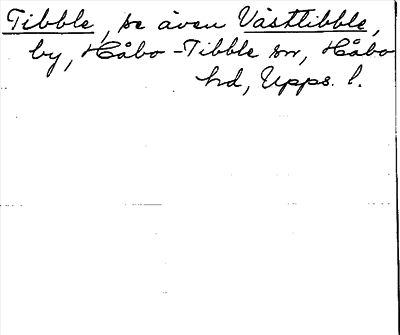 Tibble, se även Västtibble,
by, Håbo-Tibble sn, Håbo
hd, Upps. l.